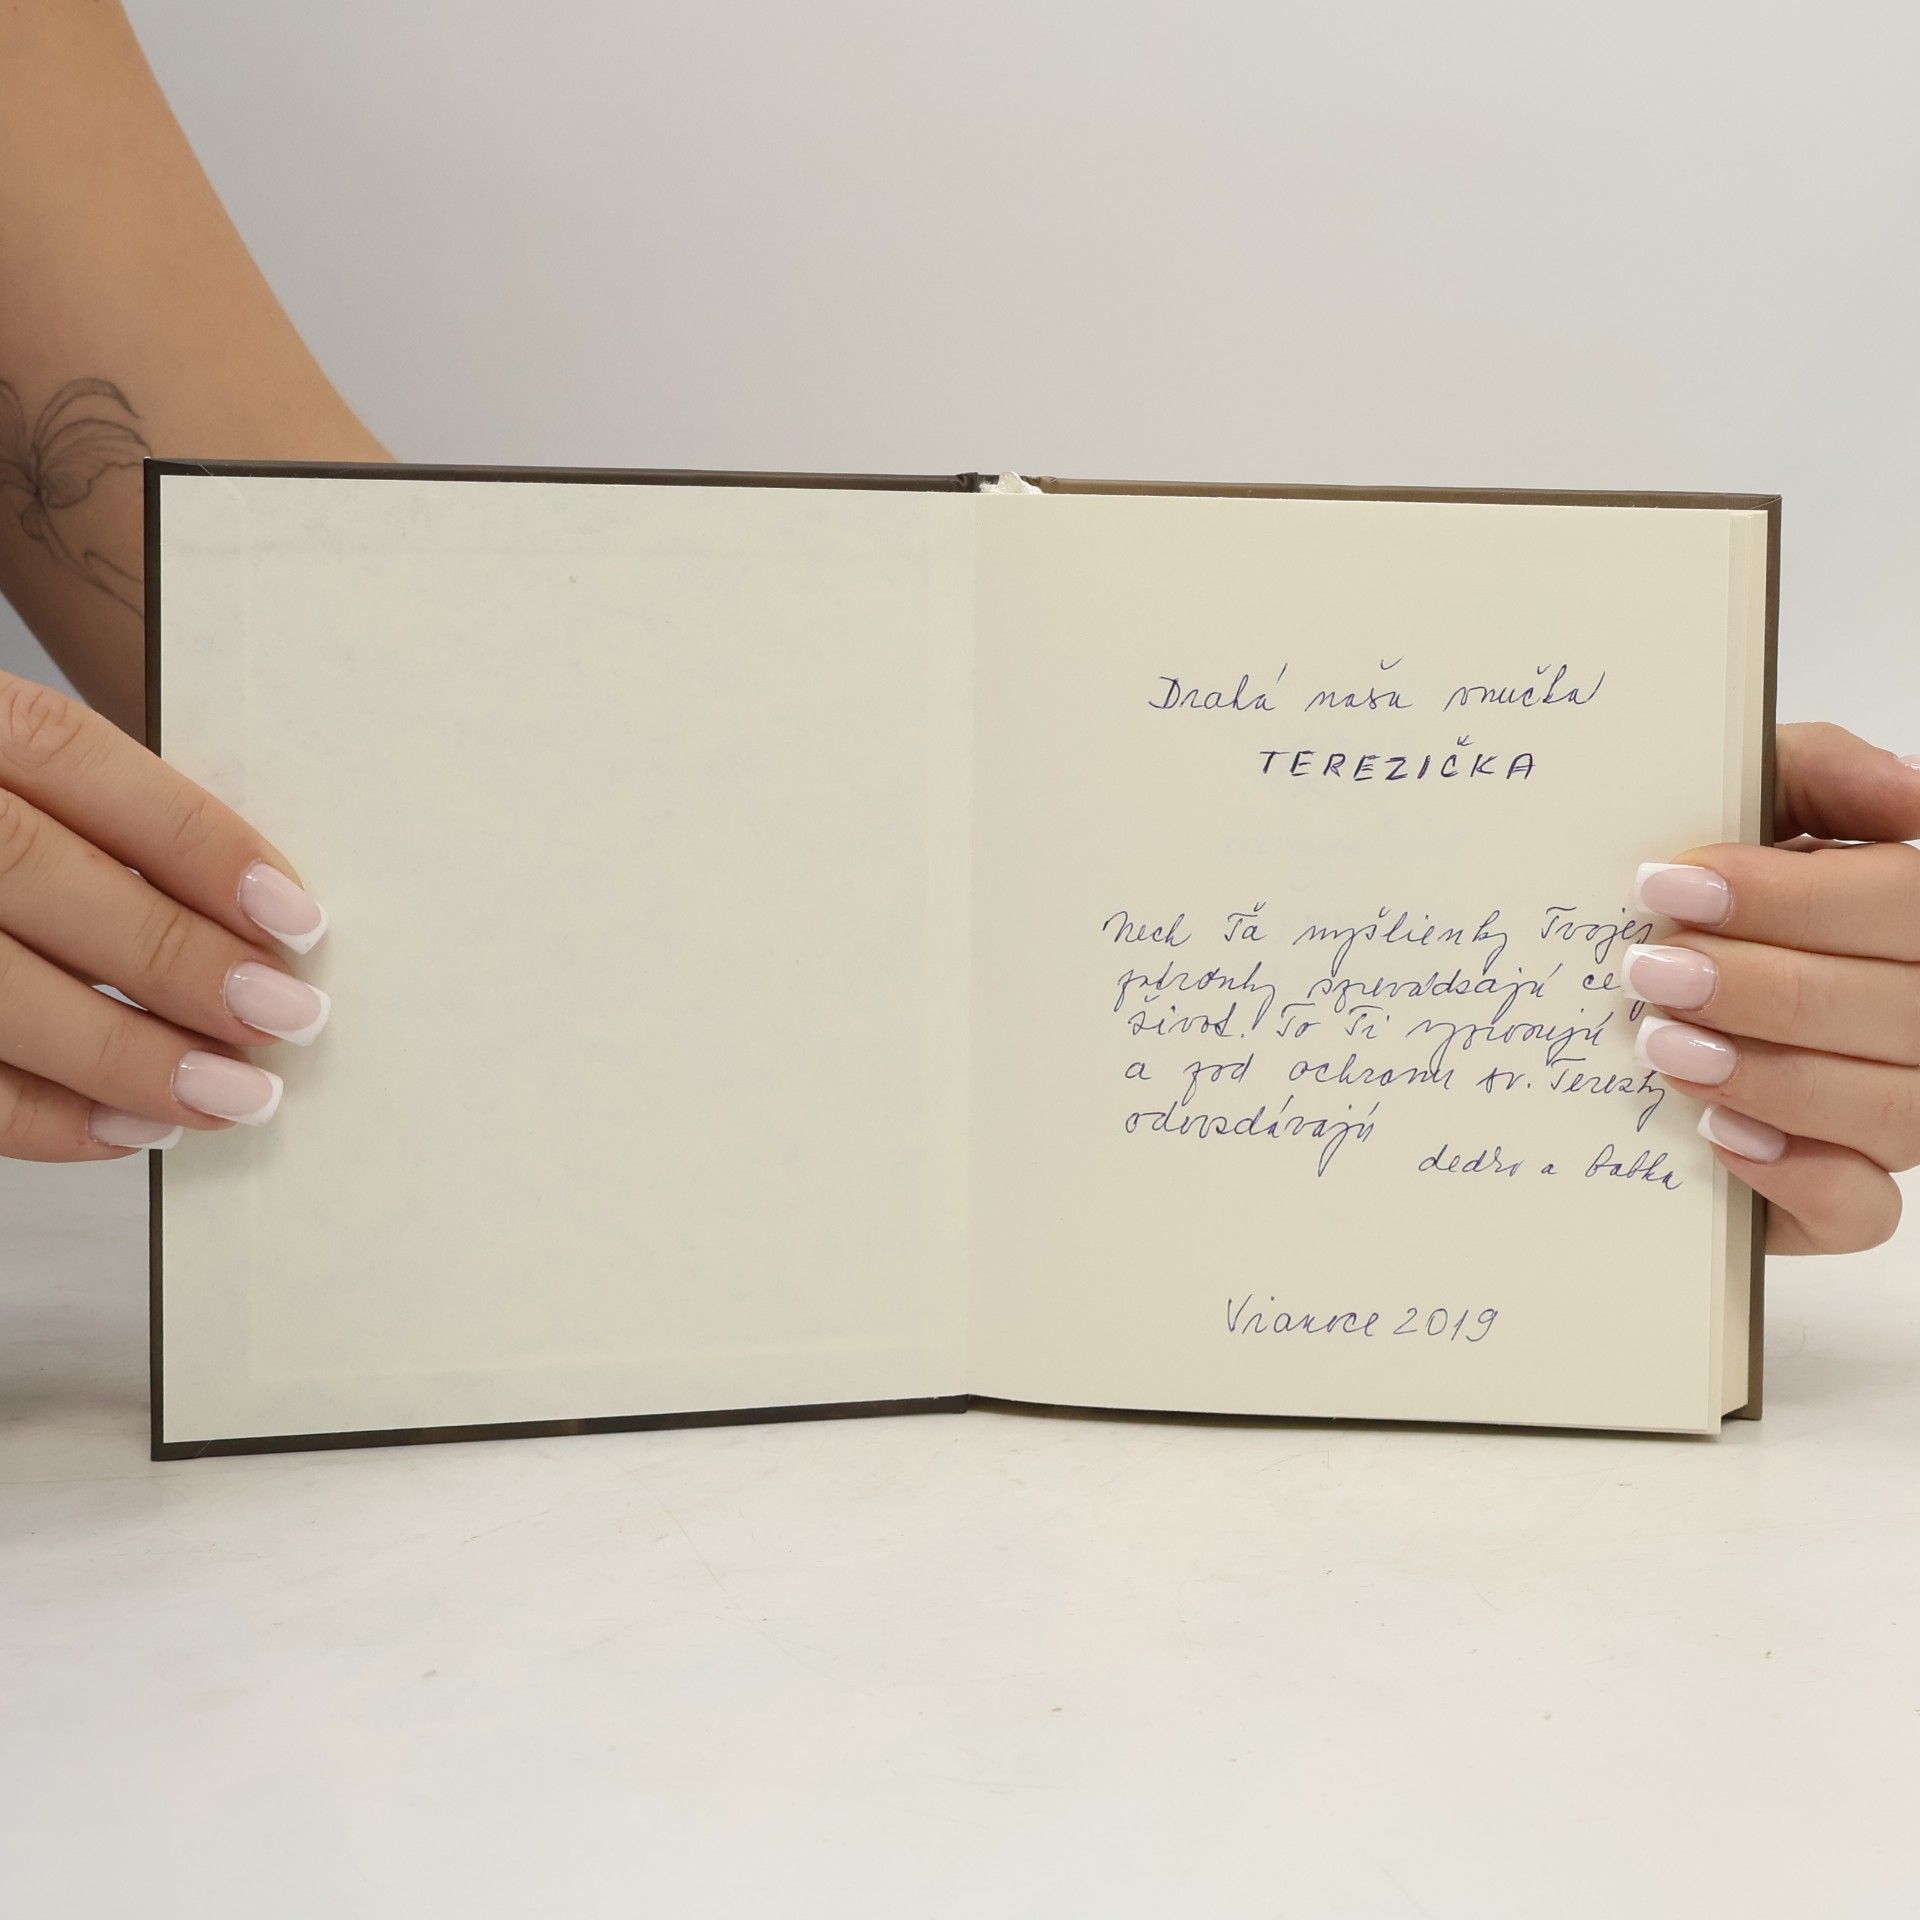 Drahá naša vnučka
TEREZIČKA
Nech Ťa myšlienky Tvojej
patrónky sprevádzajú ce
život. To Ti vyprosujú
a pod ochranu sv. Terezky
odovzdávajú
dedko a babka
Vianoce 2019